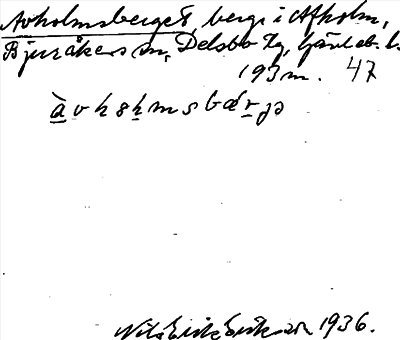 Avholmsberget berg i Afholm,
Bjuråkers sn, Delsbo tg, Gävleb. l.
193 m. 47
àvhshmsbǽrjə
Nils Erik Eriksson 1936.